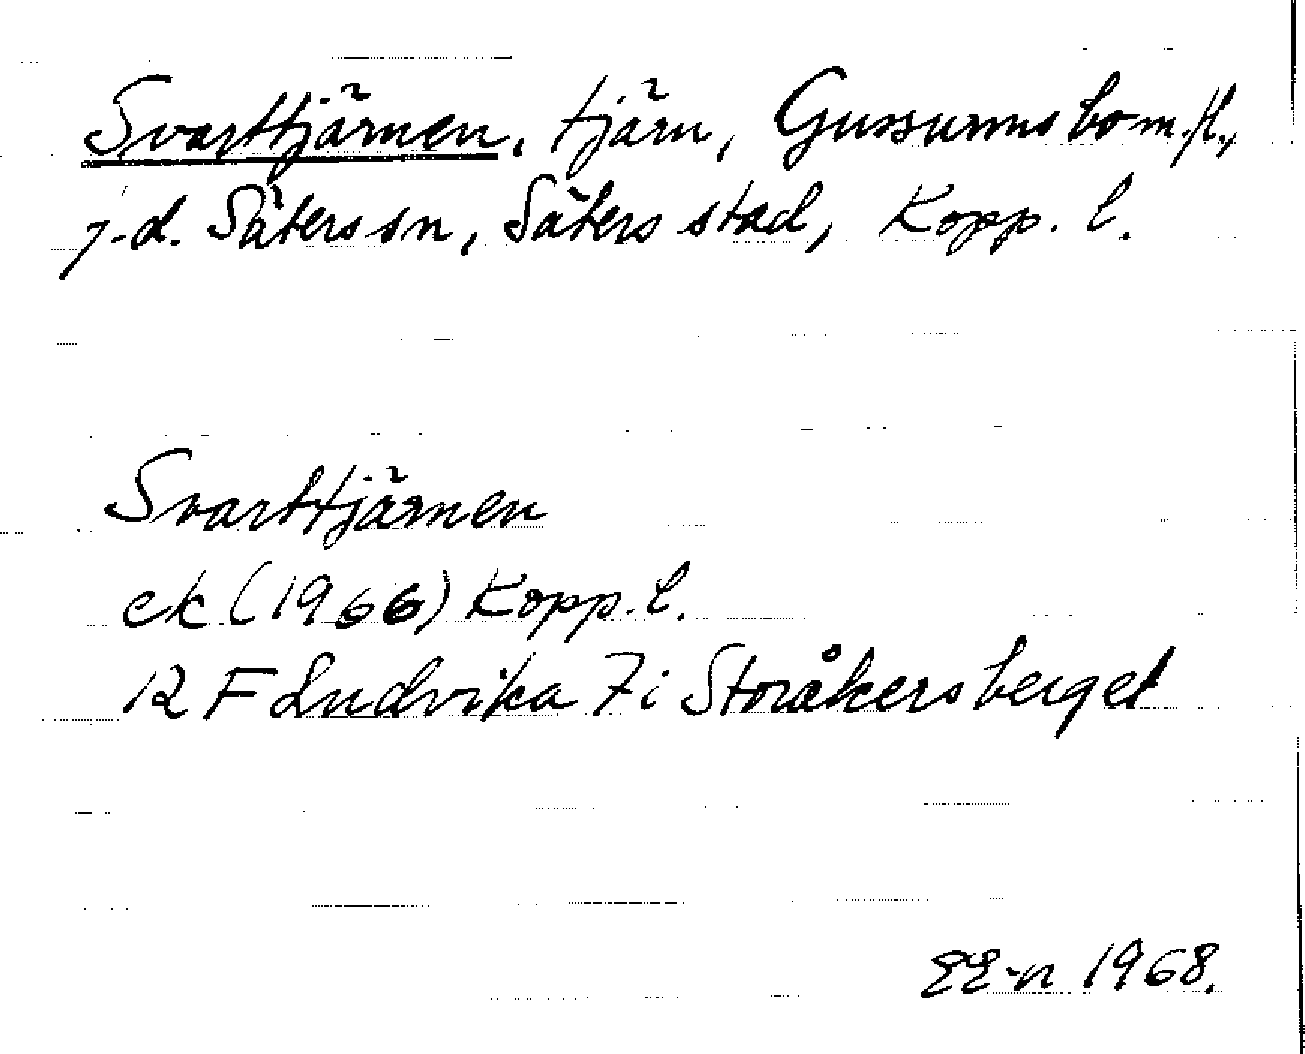 Svarttjärnen, tjärn, Gussurnsbo m.fl.,
j.d. Säters sn, Säters stad, Kopp. l.
Svarttjärnen
ek (1966) Kopp. l.
12 F Ludvika 7i Storåkersberget
EE-n 1968.